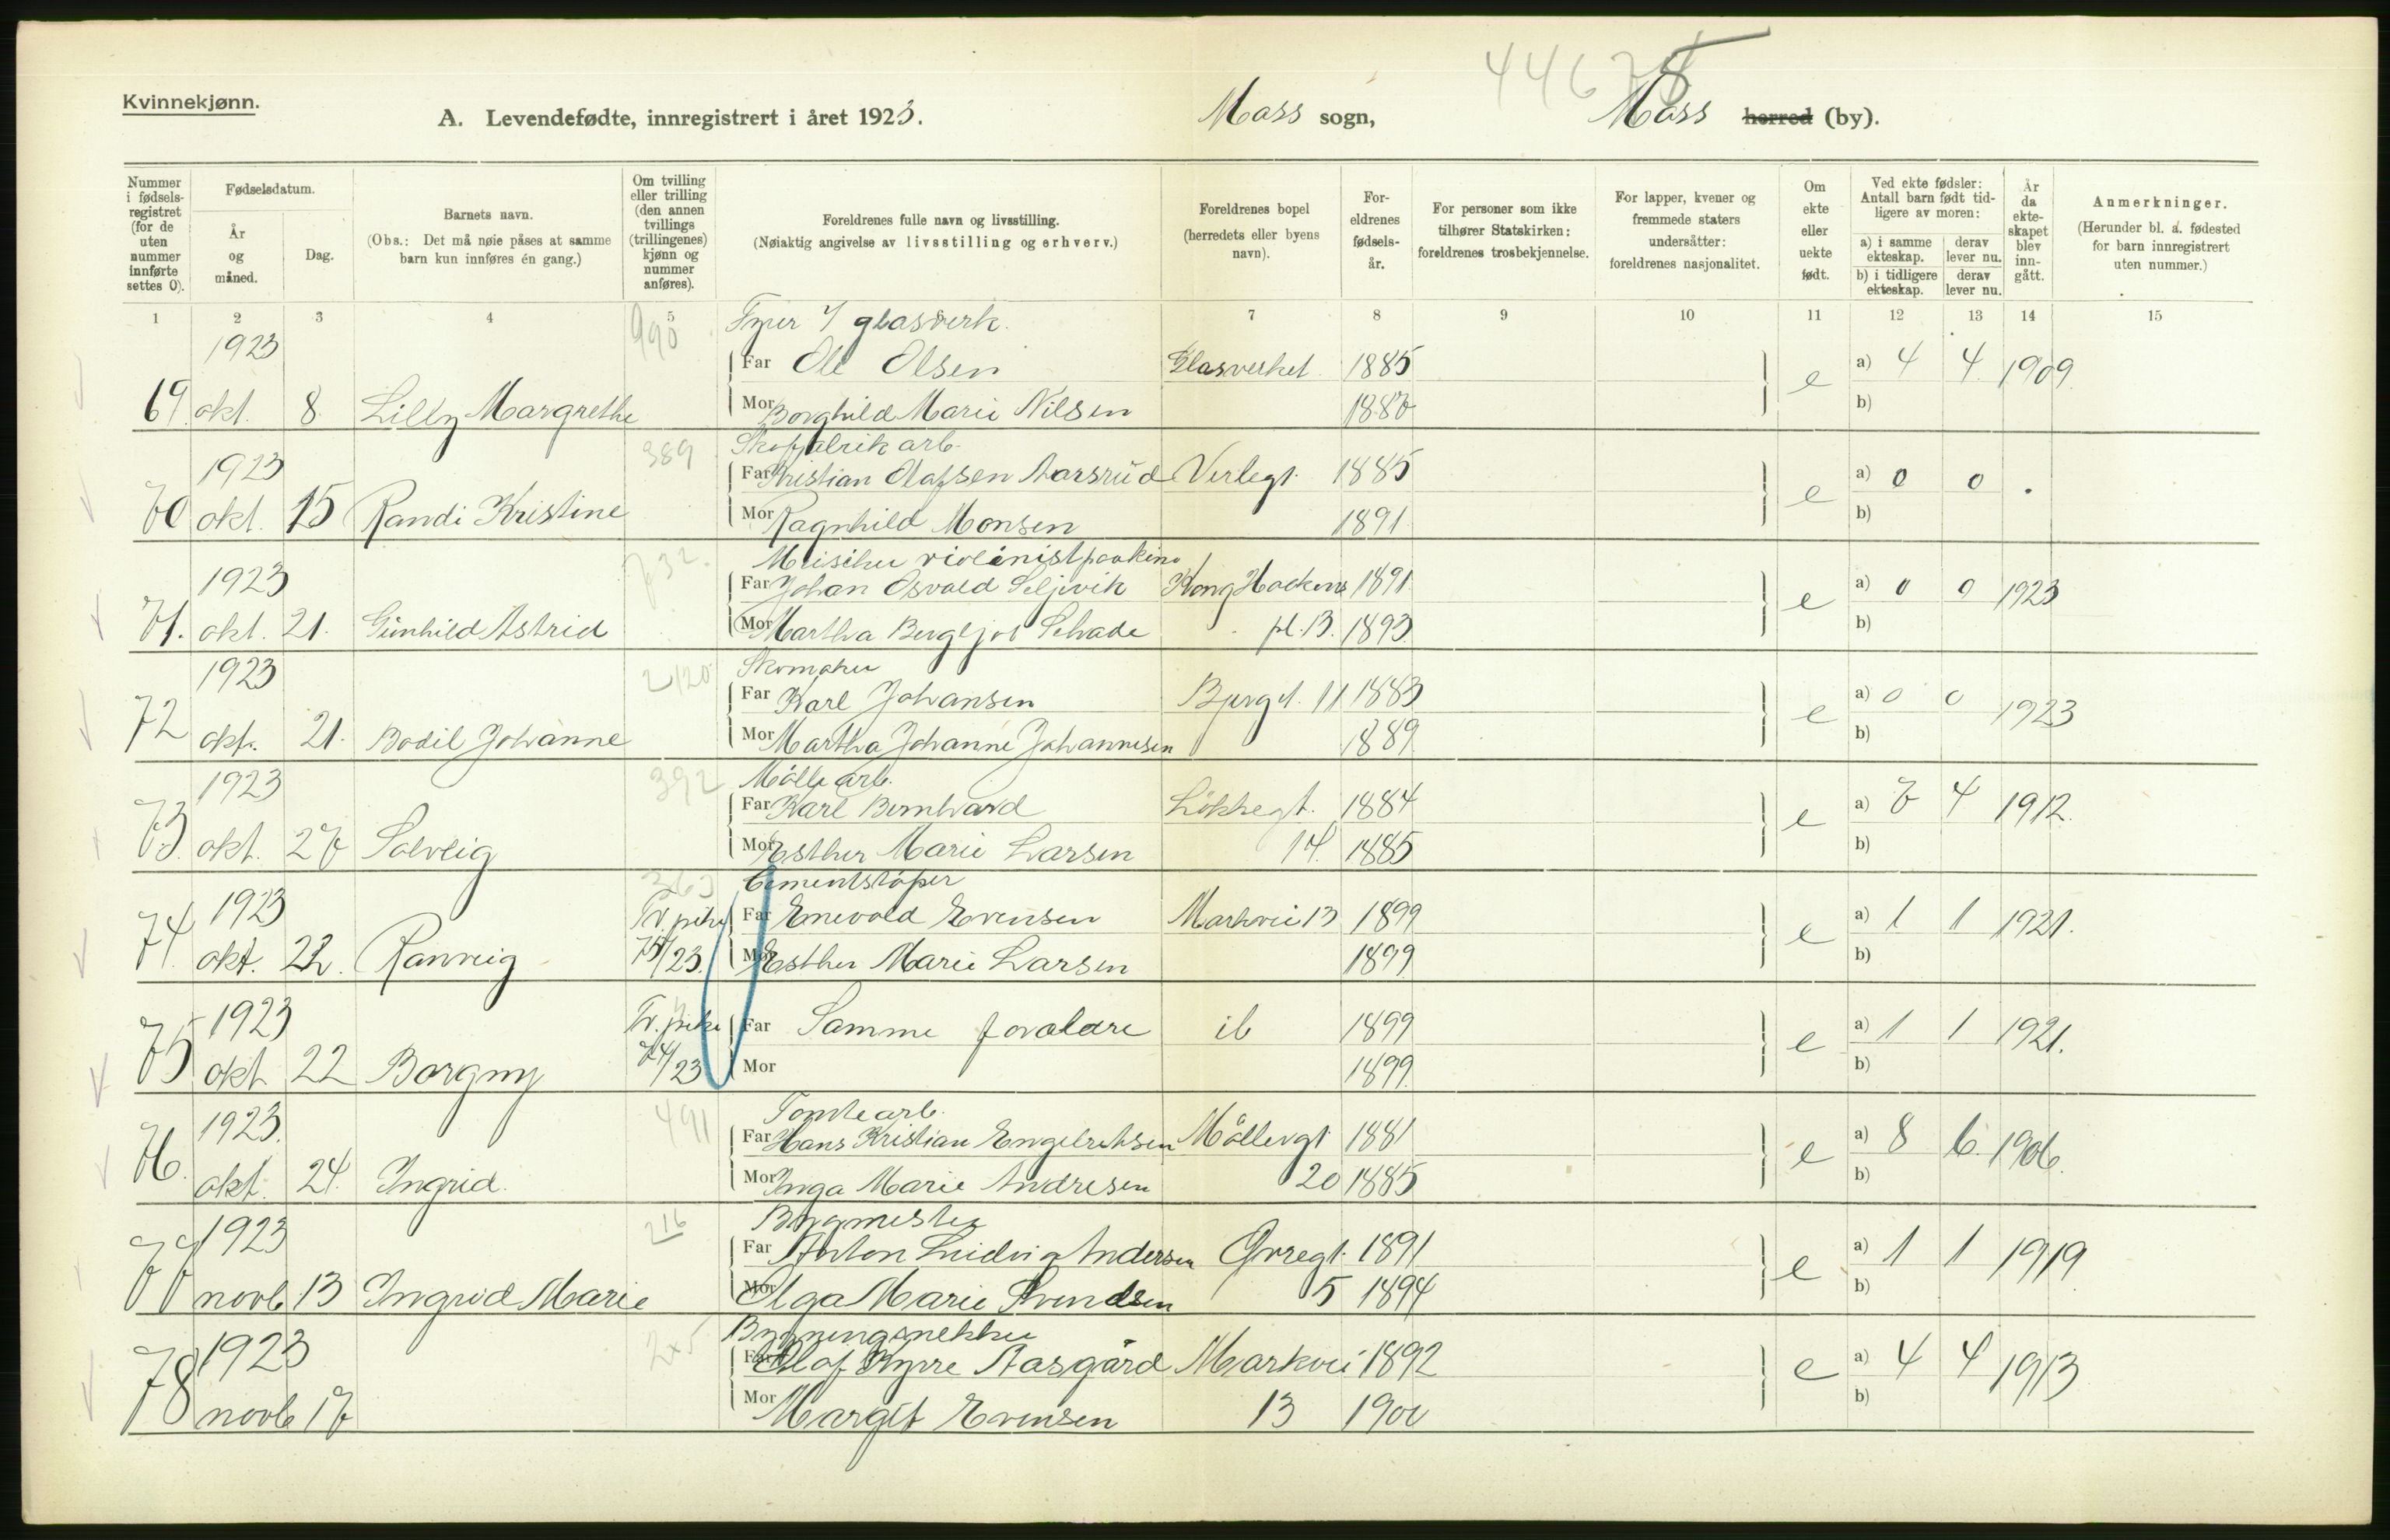 Kvinnekjønn.
A. Levendefødte, innregistrert i året 1923.
Moss sogn,
Moss herred (by).
Nummer i fødsels-registret (for de uten nummer innførte settes 0).
Fødselsdatum.
År og måned.
Dag.
Barnets navn.
(Obs.: Det må nøie påses at samme barn kun innføres én gang.)
Om tvilling eller trilling (den annen tvillings (trillingenes) kjønn og nummer anføres).
Foreldrenes fulle navn og livsstilling.
(Nøiaktig angivelse av livsstilling og erhverv.)
Foreldrenes bopel (herredets eller byens navn).
For-eldrenes fødsels-år.
For personer som ikke tilhører Statskirken: foreldrenes trosbekjennelse.
For lapper, kvener og fremmede staters undersåtter: foreldrenes nasjonalitet.
Om ekte eller uekte født.
Ved ekte fødsler: Antall barn født tid-ligere av moren:
a) i samme ekteskap. derav lever nu.
b) i tidligere ekteskap. derav lever nu.
År da ekte-skapet blev inn-gått.
Anmerkninger.
(Herunder bl. a. fødested for barn innregistrert uten nummer.)
1 2 3 4 5 6 7 8 9 10 11 12 13 14 15
990 Fyrer v glasverk.
1923 Far Ole Olsen Glasverket 1885 e a) 4 4 1909
69. okt. 8 Lilly Margrethe Mor Borghild Marie Nilsen 1887 b)
389 Skofabrik arb.
1923 Far Kristian Olafsen Aarsrud Verlegt. 1885 e a) 0 0 .
70 okt. 15 Randi Kristine Mor Ragnhild Monsen 1891 b)
732. Musiker violinist paa kino
1923 Far Johan Osvald Seljevik Kong Haakons 1891 e a) 0 0 1923
71. okt. 21. Gunhild Astrid Mor Martha Bergljot Schade pl. 13. 1893 b)
Skomaker
1923 Far Karl Johansen Bjergt. 11 1883 e a) 0 0 1923
72 okt. 21. Bodil Johanne Mor Martha Johanne Johannesen 1889 b)
392 Mölle arb.
1923 Far Karl Bernhard Lökkegt. 1884 e a) 7 4 1912.
73. okt. 27 Solveig Mor Esther Marie Larsen 14. 1885 b)
Cementstöper
1923 Tv. pike Far Enevald Evensen Markvei 13 1899 e a) 1 1 1921.
74. okt. 22. Ranveig 75/23. Mor Esther Marie Larsen 1899 b)
1923 Tv. pike Far Samme forældre ib 1899 e a) 1 1 1921.
75 okt 22 Borgny 74/23 Mor 1899. b)
491 Tomtearb.
1923. Far Hans Kristian Engelrektsen Möllergt 1881 e a) 8 6. 1906.
76. okt. 24. Ingrid. Mor Inga Marie Andresen 20 1885 b)
216 Bygmester
1923 Far Anton Ludvig Andersen Orregt. 1891 e a) 1 1 1919
77 novb 13 Ingrid Marie Mor Olga Marie Svendsen 5 1894 b)
Bygningsnekker
1923 Far Olaf Kyrre Aasgård Markvei 1892 e a) 4 4 1913
78 novb 17 Mor Margit Evensen 13 1900 b)